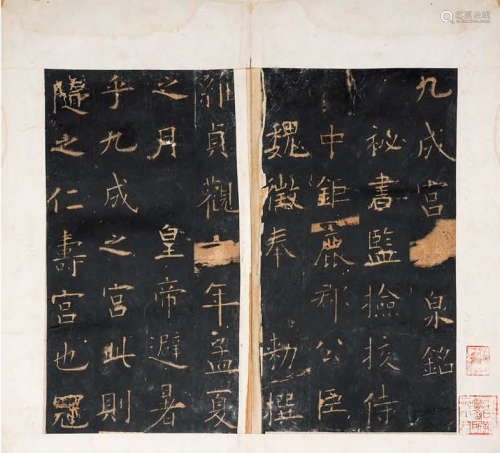 九成宮 泉銘
祕書監檢挍侍
中鉅鹿郡公臣
魏徵奉 勅撰
維貞觀 年孟夏
之月 皇帝避暑
乎九成之宮此則
隨之仁壽宮也冠